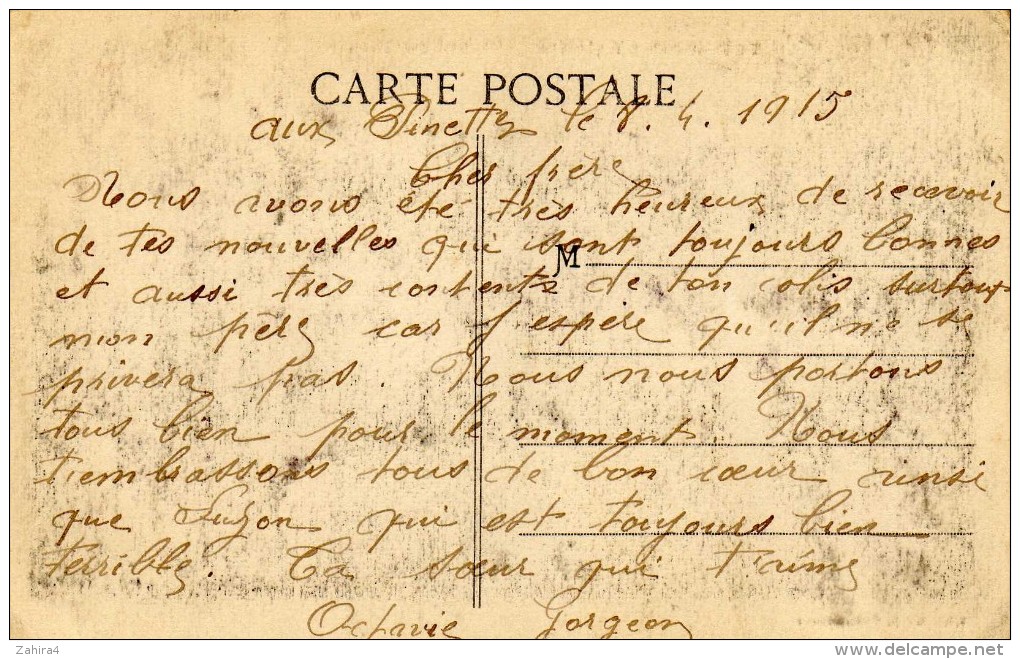 CARTE POSTALE
aux Pinettes le 8. 4. 1915
Cher frère
Nous avons été très heureux de recevoir
de tes nouvelles qui sont toujours bonnes
M
et aussi très contents de ton colis surtout
mon père car j'espère qu'il ne se
privera pas. Nous nous portons
tous bien pour le moment. Nous
t'embrassons tous de bon cœur ainsi
que Suzon qui est toujours bien
terrible. Ta sœur qui t'aime
Octavie Gorgeon
Zahira4
delcampe.net